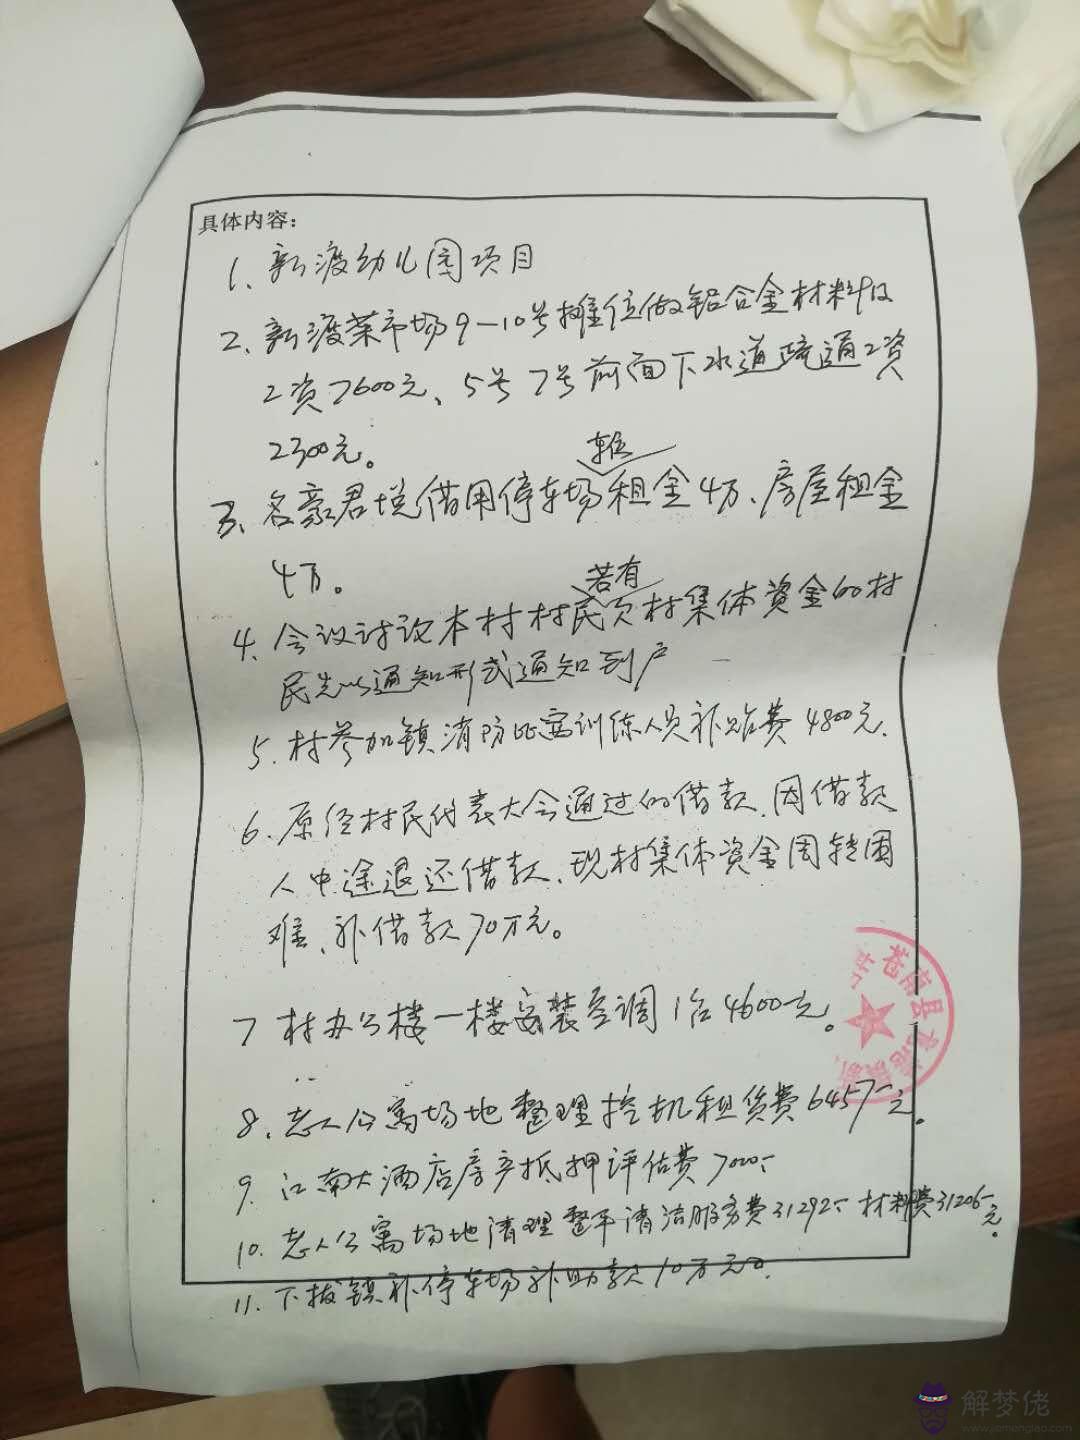 具体内容：
1、新渡幼儿园项目
2、新渡菜市场9-10号摊位做铝合金材料及
工资7600元、5号7号前面下水道疏通工资
2300元。
车位
3、名豪君悦借用停车场租金4万、房屋租金
4万。
若有
4、会议讨论本村村民欠村集体资金的村
民先以通知形式通知到户
5、村参加镇消防比赛训练人员补贴费4800元、
6、原经村民代表大会通过的借款、因借款
人中途退还借款、现村集体资金周转困
难、补借款70万元。
7 村办公楼一楼安装空调1台4600元。
8、老人公寓场地整理挖机租赁费6457元。
9、江南大酒店房产抵押评估费7000
10、老人公寓场地清理整平清洁服务费31292 材料费31206元。
11、下拔镇补停车场补助款10万元。
苍南县
解梦佬
www.jiemenglao.com